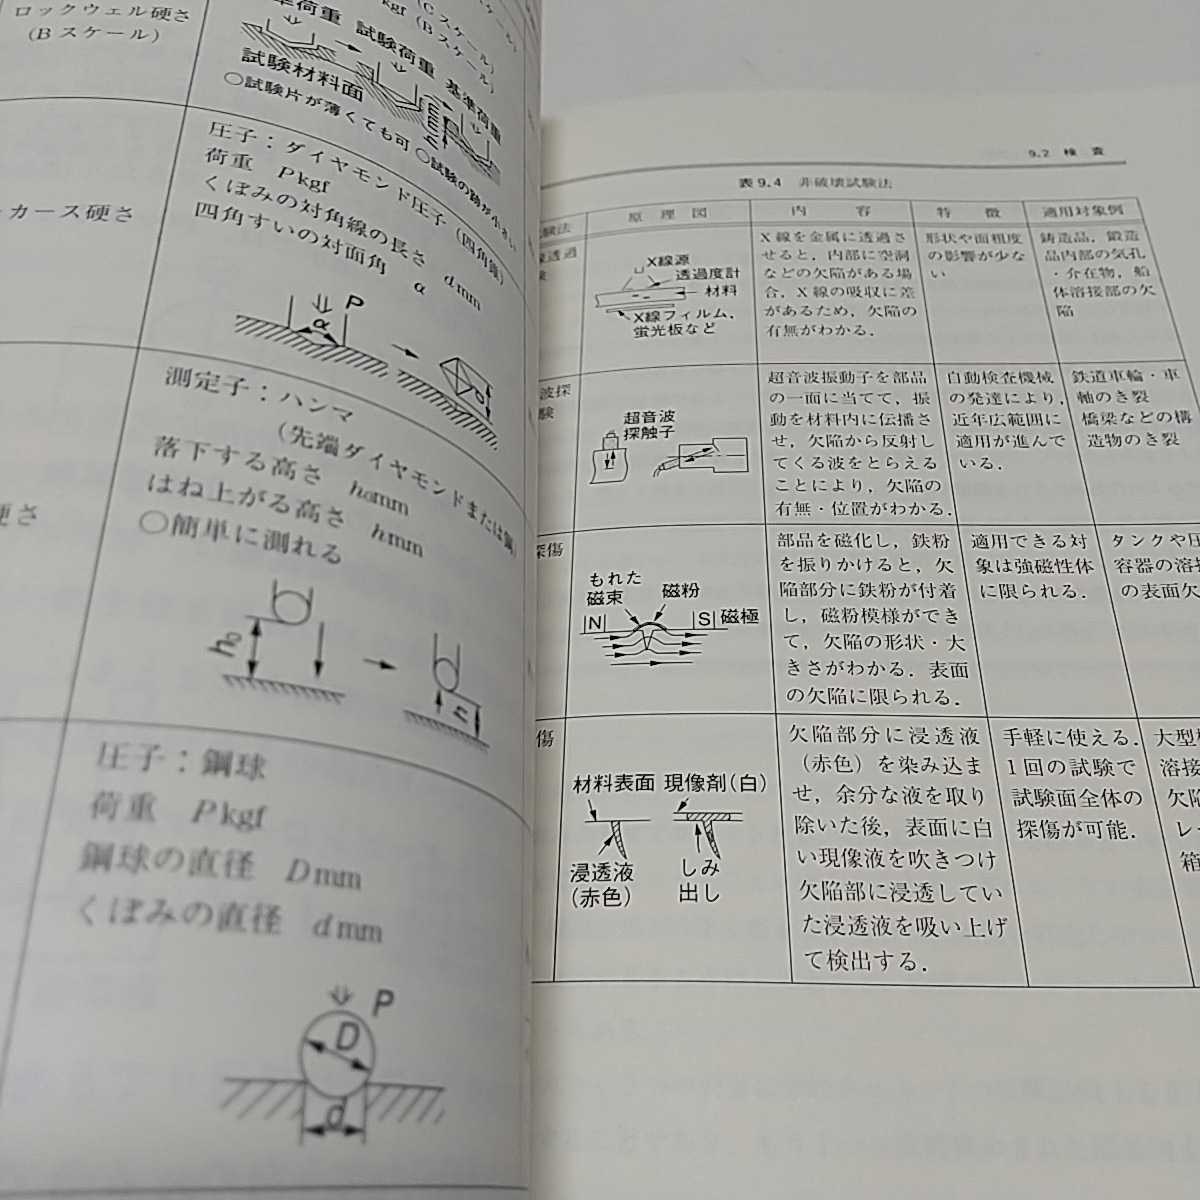 ロックウェル硬さ
(Bスケール)
準荷重 試験荷重 基準荷重
試験材料面
○試験片が薄くても可 ○試験の跡が小さい
カース硬さ
圧子：ダイヤモンド圧子(四角錐)
荷重 Pkgf
くぼみの対角線の長さ dmm
四角すいの対面角 α
P
α
硬さ
測定子：ハンマ
(先端ダイヤモンドまたは鋼)
落下する高さ h₀mm
はね上がる高さ hmm
○簡単に測れる
h₀
h
圧子：鋼球
荷重 Pkgf
鋼球の直径 Dmm
くぼみの直径 dmm
P
D
d
9.2 検 査
表9.4 非破壊試験法
験法
原 理 図
内 容
特 徴
適用対象例
線透過
X線源
透過度計
材料
X線フィルム，
蛍光板など
X線を金属に透過さ
せると，内部に空洞
などの欠陥がある場
合，X線の吸収に差
があるため，欠陥の
有無がわかる．
形状や面粗度
の影響が少な
い
鋳造品，鍛造
品内部の気孔
・介在物，船
体溶接部の欠
陥
波探
験
超音波
探触子
超音波振動子を部品
の一面に当てて，振
動を材料内に伝播さ
せ，欠陥から反射し
てくる波をとらえる
ことにより，欠陥の
有無・位置がわかる．
自動検査機械
の発達により，
近年広範囲に
適用が進んで
いる．
鉄道車輪・車
軸のき裂
橋梁などの構
造物のき裂
探傷
もれた
磁束
磁粉
N
S
磁極
部品を磁化し，鉄粉
を振りかけると，欠
陥部分に鉄粉が付着
し，磁粉模様ができ
て，欠陥の形状・大
きさがわかる．表面
の欠陥に限られる．
適用できる対
象は強磁性体
に限られる．
タンクや圧
容器の溶接
の表面欠
傷
材料表面 現像剤(白)
浸透液
(赤色)
しみ
出し
欠陥部分に浸透液
(赤色)を染み込ま
せ，余分な液を取り
除いた後，表面に白
い現像液を吹きつけ
欠陥部に浸透してい
た浸透液を吸い上げ
て検出する．
手軽に使える．
1回の試験で
試験面全体の
探傷が可能．
大型
溶接
欠陥
レ
箱